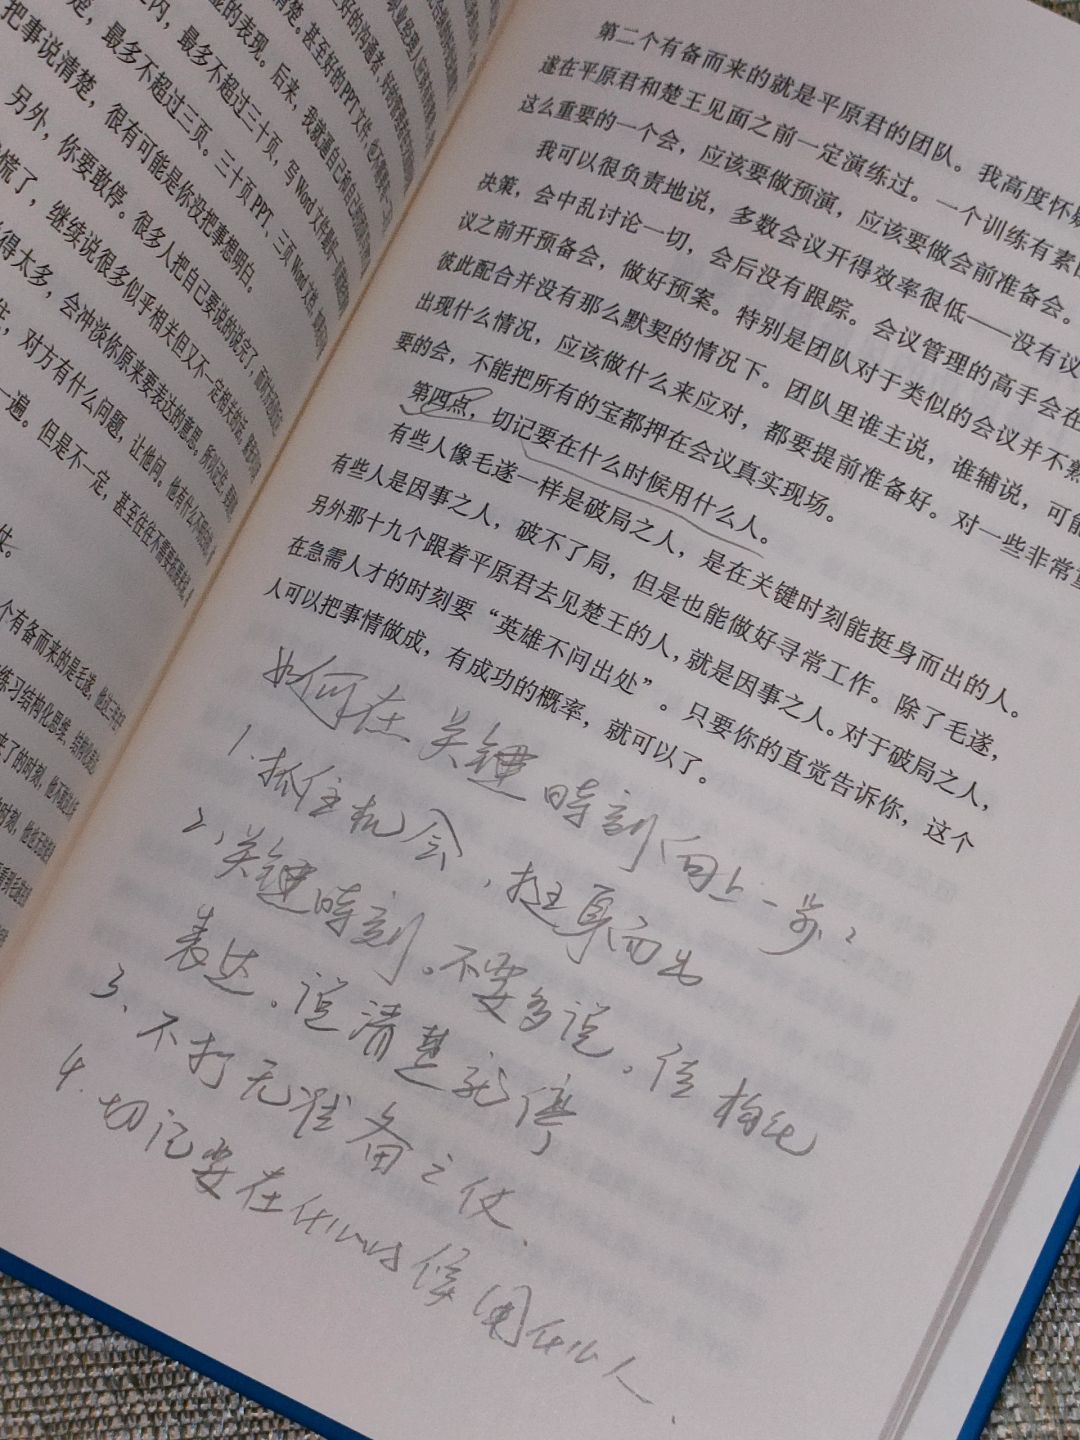 是的表现。后来，我就逼自己和自己的
之内，最多不超过三十页，写Word文件
楚，最多不超过三页。三十页PPT、三页Word文档，
把事说清楚，很有可能是你没把事想明白。
另外，你要敢停。很多人把自己要说的说完了，
慌了，继续说很多似乎相关但又不一定相关的话，
得太多，会冲淡你原来要表达的意思。所以记住，
对方有什么问题，让他问。他有什么不明白的，
一遍。但是不一定，甚至往往不需要
仗。
个有备而来的是毛遂。
练习结构化思维、结构化表达
来了的时刻，他不
第二个有备而来的就是平原君的团队。我高度怀疑
遂在平原君和楚王见面之前一定演练过。一个训练有素
这么重要的一个会，应该要做预演，应该要做会前准备会。
我可以很负责地说，多数会议开得效率很低——没有议
决策，会中乱讨论一切，会后没有跟踪。会议管理的高手会在
议之前开预备会，做好预案。特别是团队对于类似的会议并不熟
彼此配合并没有那么默契的情况下。团队里谁主说，谁辅说，可能
出现什么情况，应该做什么来应对，都要提前准备好。对一些非常重
要的会，不能把所有的宝都押在会议真实现场。
第四点，切记要在什么时候用什么人。
有些人像毛遂一样是破局之人，是在关键时刻能挺身而出的人。
有些人是因事之人，破不了局，但是也能做好寻常工作。除了毛遂，
另外那十九个跟着平原君去见楚王的人，就是因事之人。对于破局之人，
在急需人才的时刻要“英雄不问出处”。只要你的直觉告诉你，这个
人可以把事情做成，有成功的概率，就可以了。
如何在关键時刻向上一步？
1.抓住机会，挺身而出
2、关键時刻。不要多说，结构化
表达。说清楚就停
3、不打无准备之仗、
4.切记要在什么时候用什么人、